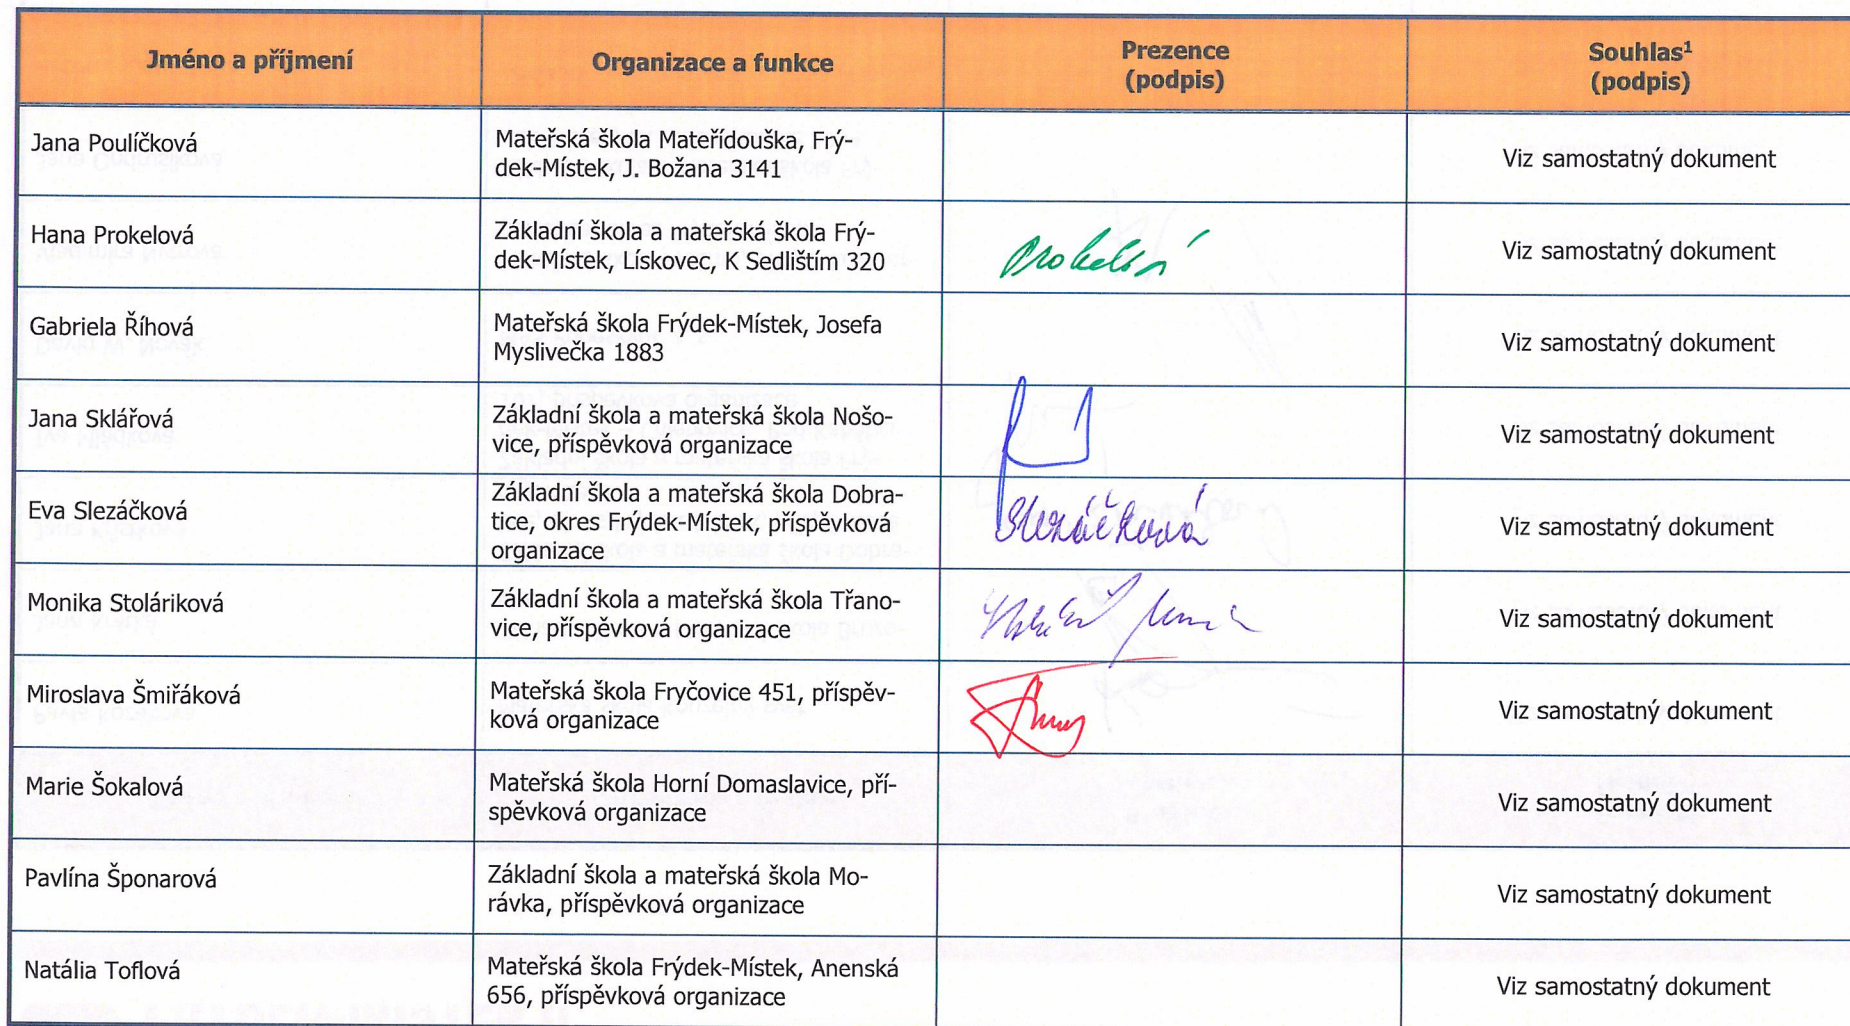 Jméno a příjmení
Organizace a funkce
Prezence
(podpis)
Souhlas¹
(podpis)
Jana Poulíčková
Mateřská škola Mateřídouška, Frý-
dek-Místek, J. Božana 3141
Viz samostatný dokument
Hana Prokelová
Základní škola a mateřská škola Frý-
dek-Místek, Lískovec, K Sedlištím 320
Prokelová
Viz samostatný dokument
Gabriela Říhová
Mateřská škola Frýdek-Místek, Josefa
Myslivečka 1883
Viz samostatný dokument
Jana Sklářová
Základní škola a mateřská škola Nošo-
vice, příspěvková organizace
Viz samostatný dokument
Eva Slezáčková
Základní škola a mateřská škola Dobra-
tice, okres Frýdek-Místek, příspěvková
organizace
Slezáčková
Viz samostatný dokument
Monika Stoláriková
Základní škola a mateřská škola Třano-
vice, příspěvková organizace
Viz samostatný dokument
Miroslava Šmiřáková
Mateřská škola Fryčovice 451, příspěv-
ková organizace
Viz samostatný dokument
Marie Šokalová
Mateřská škola Horní Domaslavice, pří-
spěvková organizace
Viz samostatný dokument
Pavlína Šponarová
Základní škola a mateřská škola Mo-
rávka, příspěvková organizace
Viz samostatný dokument
Natália Toflová
Mateřská škola Frýdek-Místek, Anenská
656, příspěvková organizace
Viz samostatný dokument